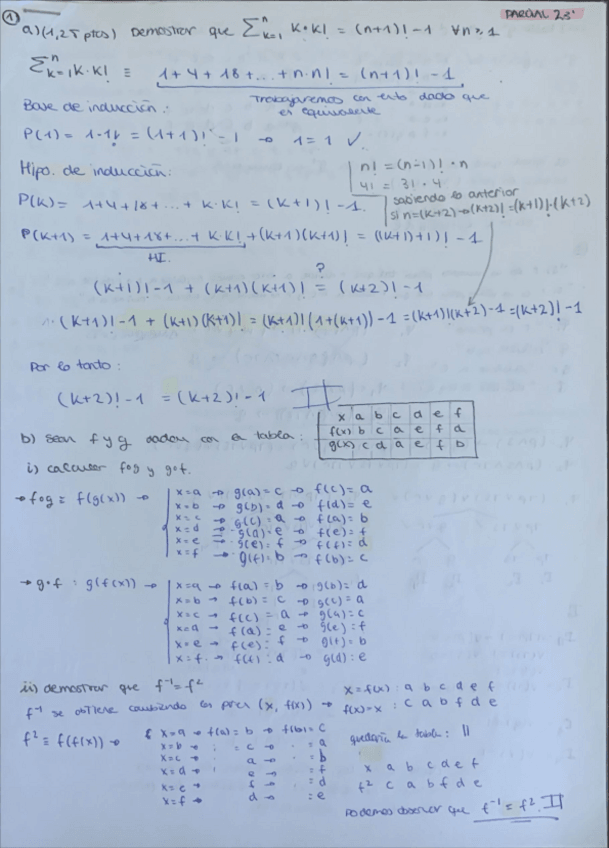 ① PARCIAL 23'
a) (1,25 ptos) Demostrar que ∑ₖ₌₁ⁿ k·k! = (n+1)! - 1 ∀n ≥ 1
∑ₖ₌₁ⁿ k·k! ≡ 1+4+18+...+n·n! = (n+1)! - 1
Trabajaremos con esto dado que es equivalente
Base de inducción:
P(1) = 1·1! = (1+1)! - 1 → 1 = 1 ✓
n! = (n-1)! · n
4! = 3! · 4
Hipo. de inducción:
P(k) = 1+4+18+...+ k·k! = (k+1)! - 1
sabiendo lo anterior
si n=(k+2) → (k+2)! = (k+1)!·(k+2)
P(k+1) = 1+4+18+...+ k·k! + (k+1)(k+1)! = ((k+1)+1)! - 1
HI.
(k+1)! - 1 + (k+1)(k+1)! ≟ (k+2)! - 1
(k+1)! - 1 + (k+1)(k+1)! = (k+1)! (1+(k+1)) - 1 = (k+1)!(k+2) - 1 = (k+2)! - 1
Por lo tanto:
(k+2)! - 1 = (k+2)! - 1
b) sean f y g dadas con la tabla:
x a b c d e f
f(x) b c a e f d
g(x) c d a e f b
i) calcular f∘g y g∘f.
→ f∘g ≡ f(g(x)) →
x=a → g(a)=c → f(c)=a
x=b → g(b)=d → f(d)=e
x=c → g(c)=a → f(a)=b
x=d → g(d)=e → f(e)=f
x=e → g(e)=f → f(f)=d
x=f → g(f)=b → f(b)=c
→ g∘f : g(f(x)) →
x=a → f(a)=b → g(b)=d
x=b → f(b)=c → g(c)=a
x=c → f(c)=a → g(a)=c
x=d → f(d)=e → g(e)=f
x=e → f(e)=f → g(f)=b
x=f → f(f)=d → g(d)=e
ii) demostrar que f⁻¹ = f²
f⁻¹ se obtiene cambiando los pares (x, f(x)) →
x=f(x) : a b c d e f
f(x)=x : c a b f d e
f² ≡ f(f(x)) →
x=a → f(a)=b → f(b)=c
x=b → = c → = a
x=c → a → = b
x=d → e → = f
x=e → f → = d
x=f → d → = e
quedaría la tabla:
x a b c d e f
f² c a b f d e
Podemos observar que f⁻¹ = f².